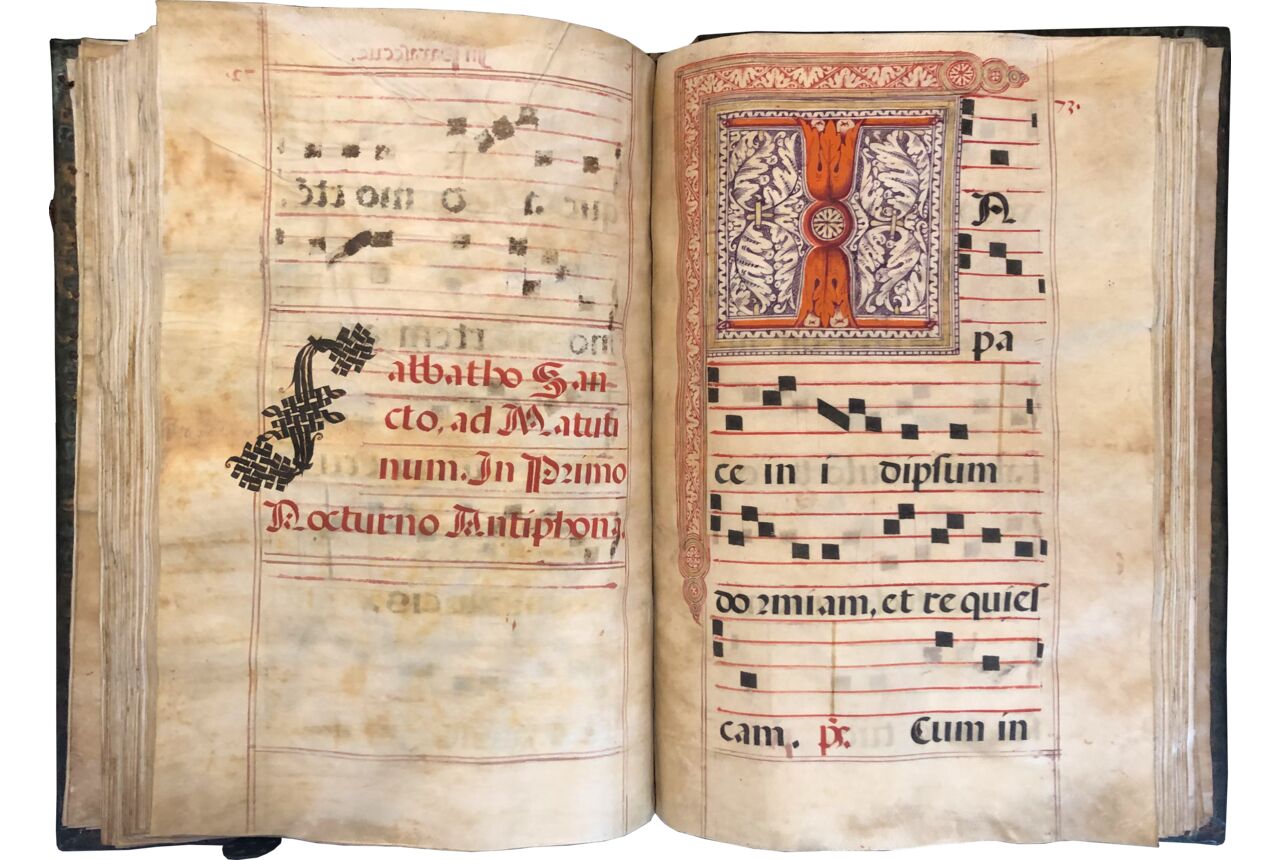 Sabbatho San-
cto, ad Matuti
num. In Primo
Nocturno Antiphona.
73.
IN
pa
ce in i dipsum
do rmiam, et re quies
cam. ps. Cum in